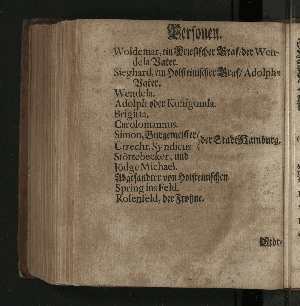 Personen.
Woldemar, ein Friesischer Graf/ der Wen-
dela Vater.
Sieghard, ein Holsteinischer Graf/ Adolphs
Vater.
Wendela.
Adolph oder Kunigunda.
Brigitta.
Carolomannus.
Simon, Burgemeister/
der Stadt Hamburg.
Utrecht, Syndicus
Störtebecker, und
Jödge Michael.
Abgesandter von Holsteinischen
Spring ins Feld.
Rosenfeld, der Frohne.